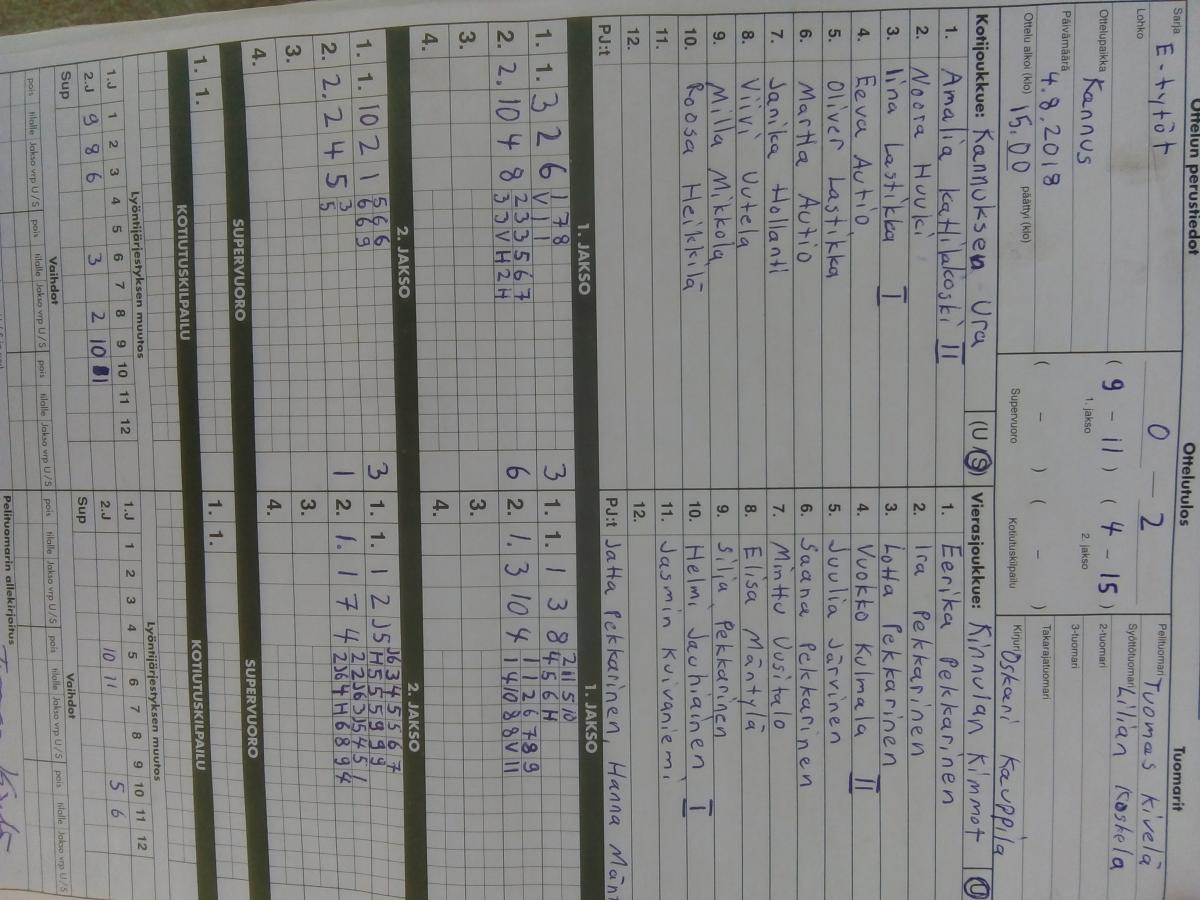 Ottelun perustiedot
Sarja E-tytöt
Lohko
Ottelupaikka Kannus
Päivämäärä 4.8.2018
Ottelu alkoi (klo) 15.00 päättyi (klo)
Ottelutulos
0 – 2
( 9 – 11 ) ( 4 – 15 )
1. jakso 2. jakso
( – ) ( – )
Supervuoro Kotiutuskilpailu
Tuomarit
Pelituomari Tuomas Kivelä
Syöttötuomari Lilian Koskela
2-tuomari
3-tuomari
Takarajatuomari
Kirjuri Oskari Kauppila
Kotijoukkue: Kannuksen Ura (U/S)
1. Amalia Katilakoski II
2. Noora Huuki
3. Iina Lastikka I
4. Eeva Autio
5. Oliver Lastikka
6. Martta Autio
7. Janika Hollanti
8. Viivi Uutela
9. Milla Mikkola
10. Roosa Heikkilä
11.
12.
PJ:t
Vierasjoukkue: Kinnulan Kimmot (U
1. Eerika Pekkarinen
2. Ira Pekkarinen
3. Lotta Pekkarinen
4. Vuokko Kulmala II
5. Juulia Järvinen
6. Saana Pekkarinen
7. Minttu Uusitalo
8. Elisa Mäntylä
9. Silja Pekkarinen
10. Helmi Jauhiainen I
11. Jasmin Kuivaniemi
12.
PJ:t Jatta Pekkarinen, Hanna Män
1. JAKSO
1. 1. 3 2 6 1 7 8 3
V 1 1
2. 2. 10 4 8 2 3 3 5 6 7 6
3 3 V H 2 H
3.
4.
1. JAKSO
1. 1. 1 3 8 2 11 5 10
4 5 6 H
2. 1. 3 10 4 1 1 2 6 7 8 9
1 4 10 8 8 V 11
3.
4.
2. JAKSO
1. 1. 10 2 1 5 6 6 3
1 6 6 9
2. 2. 2 4 5 3 1
5
3.
4.
2. JAKSO
1. 1. 1 2
2. 1. 1 7 4
3.
4.
SUPERVUORO
KOTIUTUSKILPAILU
1. 1.
SUPERVUORO
KOTIUTUSKILPAILU
1. 1.
Lyöntijärjestyksen muutos
1 2 3 4 5 6 7 8 9 10 11 12
1.J
2.J 9 8 6 3 2 10 1
Sup
Vaihdot
pois tilalle Jakso vrp U/S pois tilalle Jakso vrp U/S pois tilalle Jakso vrp U/S
Lyöntijärjestyksen muutos
1 2 3 4 5 6 7 8 9 10 11 12
1.J
2.J 10 11 5 6
Sup
Vaihdot
pois tilalle Jakso vrp U/S pois tilalle Jakso vrp U/S pois tilalle Jakso vrp U/S
Pelituomarin allekirjoitus